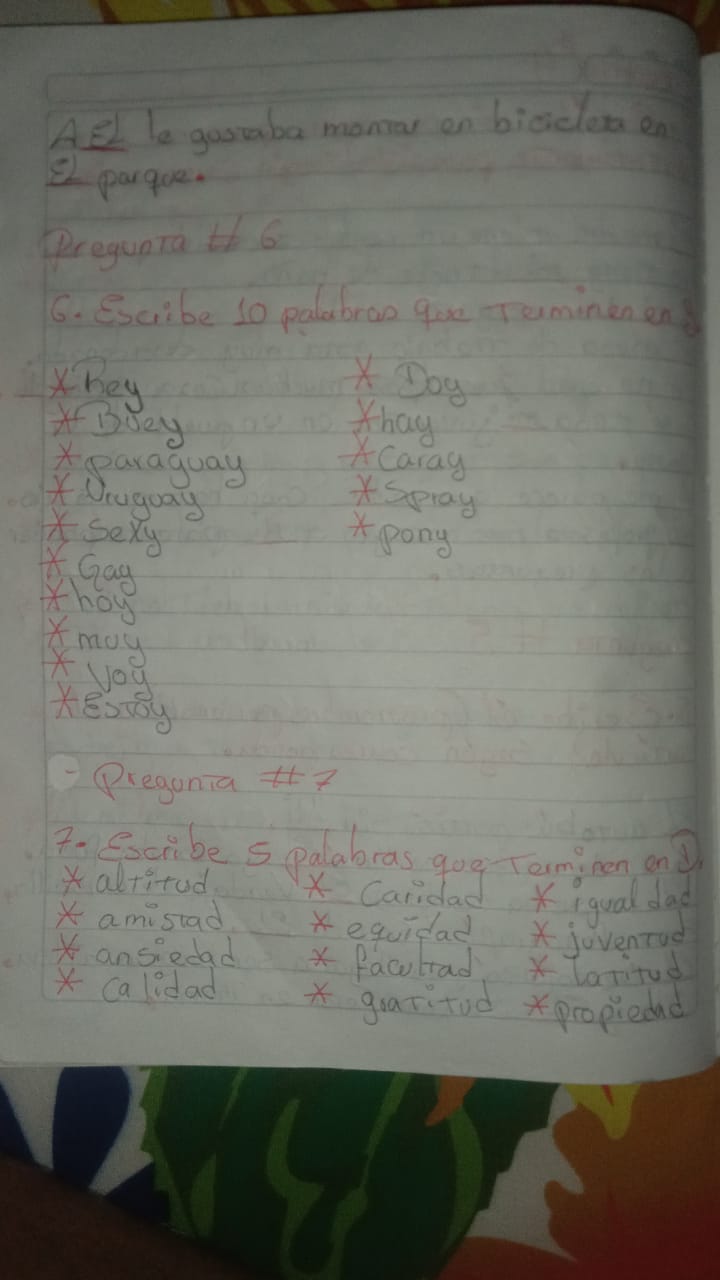 A EL le gustaba montar en bicicleta en
EL parque.
Pregunta # 6
6. Escribe 10 palabras que Terminen en y
* Rey
* Buey
* paraguay
* Uruguay
* Sexy
* Gay
* hoy
* muy
* Voy
* ESTOY
* Doy
* hay
* Caray
* Spray
* pony
- Pregunta # 7
7. Escribe 5 palabras que Terminen en D.
* altitud
* amistad
* ansiedad
* calidad
* Caridad
* equidad
* facultad
* gratitud
* igualdad
* juventud
* latitud
* propiedad